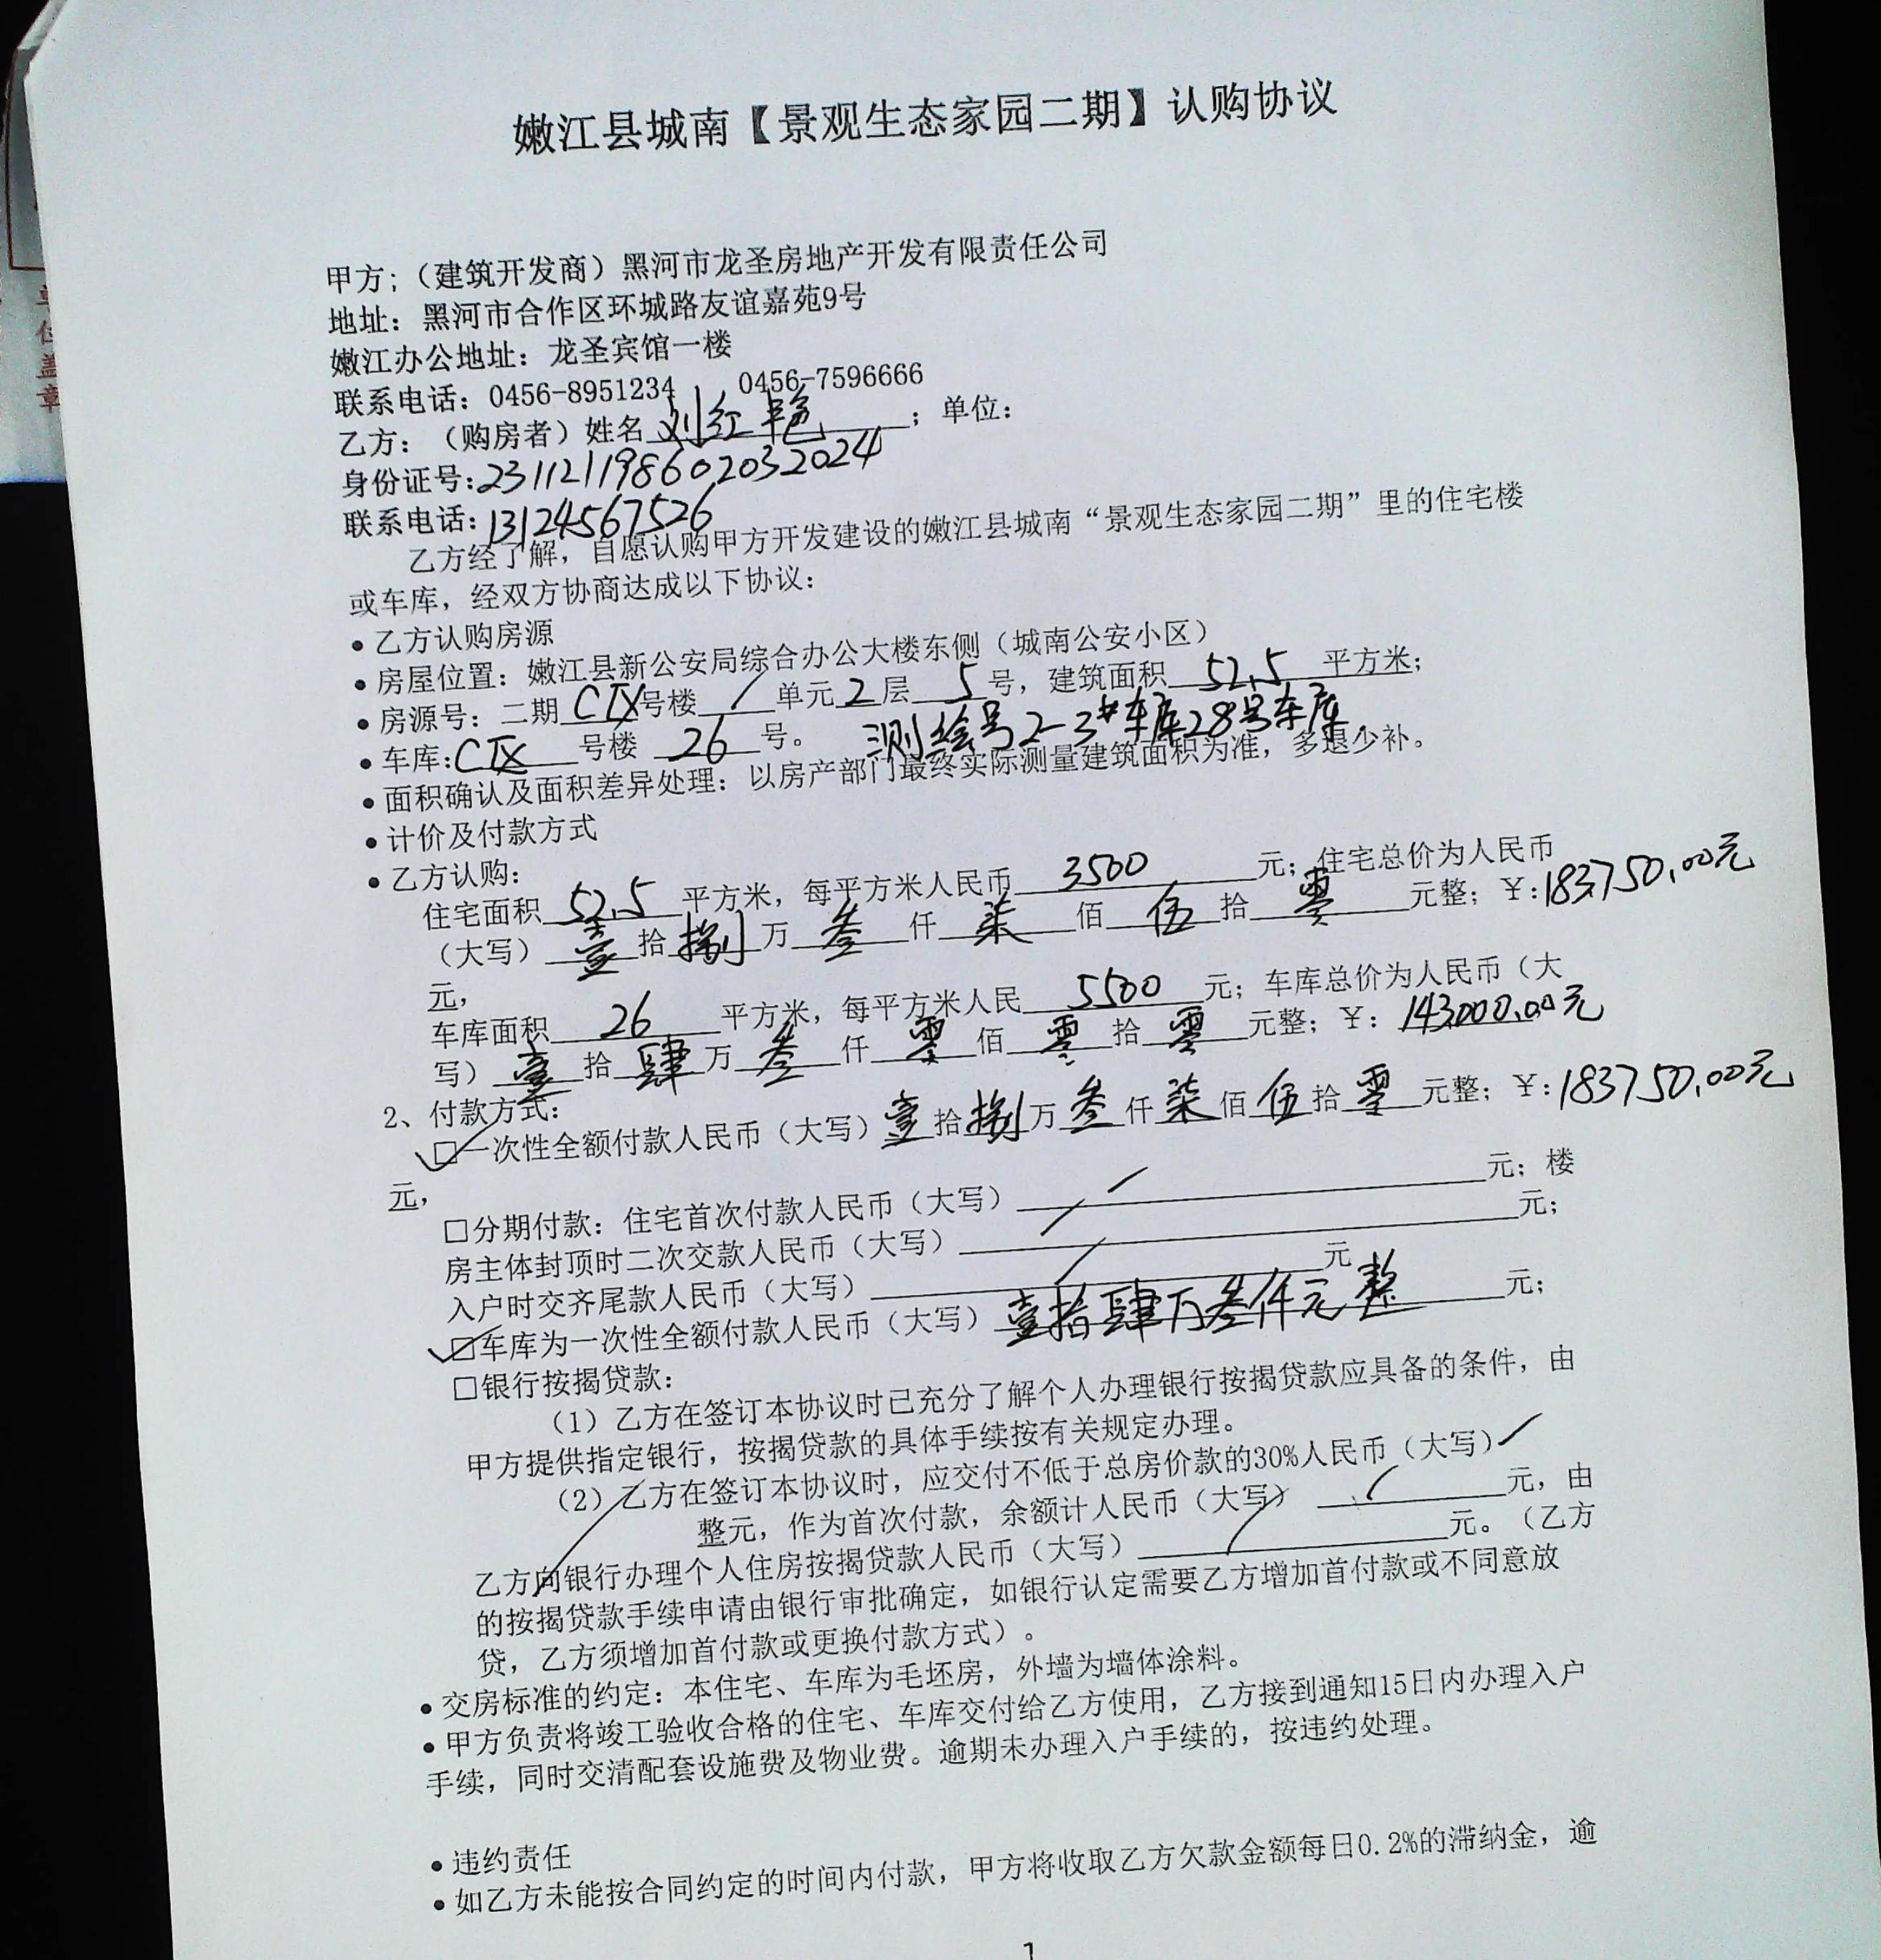 嫩江县城南【景观生态家园二期】认购协议
甲方;（建筑开发商）黑河市龙圣房地产开发有限责任公司
地址：黑河市合作区环城路友谊嘉苑9号
嫩江办公地址：龙圣宾馆一楼
联系电话：0456-8951234 0456-7596666
乙方：（购房者）姓名刘红艳；单位：
身份证号:231121198602032024
联系电话:13124567526
乙方经了解，自愿认购甲方开发建设的嫩江县城南“景观生态家园二期”里的住宅楼
或车库，经双方协商达成以下协议：
•乙方认购房源
•房屋位置：嫩江县新公安局综合办公大楼东侧（城南公安小区）
•房源号：二期C区号楼/单元2层5号，建筑面积52.5平方米；
•车库:C区号楼26号。 测绘号2-3#车库28号车库
•面积确认及面积差异处理：以房产部门最终实际测量建筑面积为准，多退少补。
•计价及付款方式
•乙方认购：
住宅面积52.5平方米，每平方米人民币3500元；住宅总价为人民币
（大写）壹拾捌万叁仟柒佰伍拾零元整；￥:183750.00元
元，
车库面积26平方米，每平方米人民5500元；车库总价为人民币（大
写）壹拾肆万叁仟零佰零拾零元整；￥：143000.00元
2、付款方式：
☑一次性全额付款人民币（大写）壹拾捌万叁仟柒佰伍拾零元整；￥:183750.00元
元，
□分期付款：住宅首次付款人民币（大写）/元；楼
房主体封顶时二次交款人民币（大写）/元；
入户时交齐尾款人民币（大写）/元
☑车库为一次性全额付款人民币（大写）壹拾肆万叁仟元整元；
□银行按揭贷款：
（1）乙方在签订本协议时已充分了解个人办理银行按揭贷款应具备的条件，由
甲方提供指定银行，按揭贷款的具体手续按有关规定办理。
（2）乙方在签订本协议时，应交付不低于总房价款的30%人民币（大写）/
整元，作为首次付款，余额计人民币（大写）/元，由
乙方向银行办理个人住房按揭贷款人民币（大写）/元。（乙方
的按揭贷款手续申请由银行审批确定，如银行认定需要乙方增加首付款或不同意放
贷，乙方须增加首付款或更换付款方式）。
•交房标准的约定：本住宅、车库为毛坯房，外墙为墙体涂料。
•甲方负责将竣工验收合格的住宅、车库交付给乙方使用，乙方接到通知15日内办理入户
手续，同时交清配套设施费及物业费。逾期未办理入户手续的，按违约处理。
•违约责任
•如乙方未能按合同约定的时间内付款，甲方将收取乙方欠款金额每日0.2%的滞纳金，逾
1
盖章